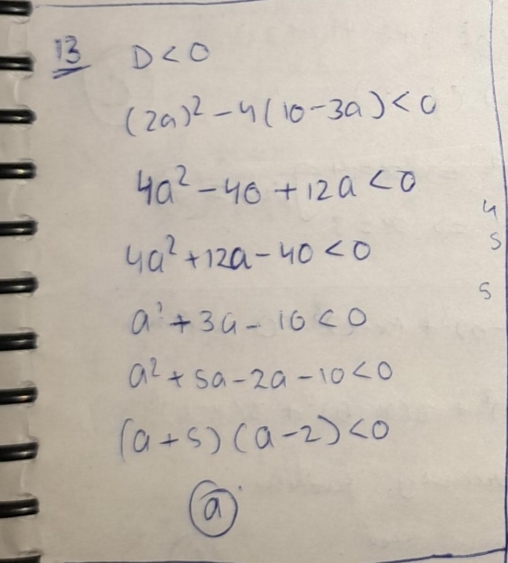 13 D < 0
(2a)² - 4(10 - 3a) < 0
4a² - 40 + 12a < 0
4a² + 12a - 40 < 0
a² + 3a - 10 < 0
a² + 5a - 2a - 10 < 0
(a + 5)(a - 2) < 0
a
4
5
5